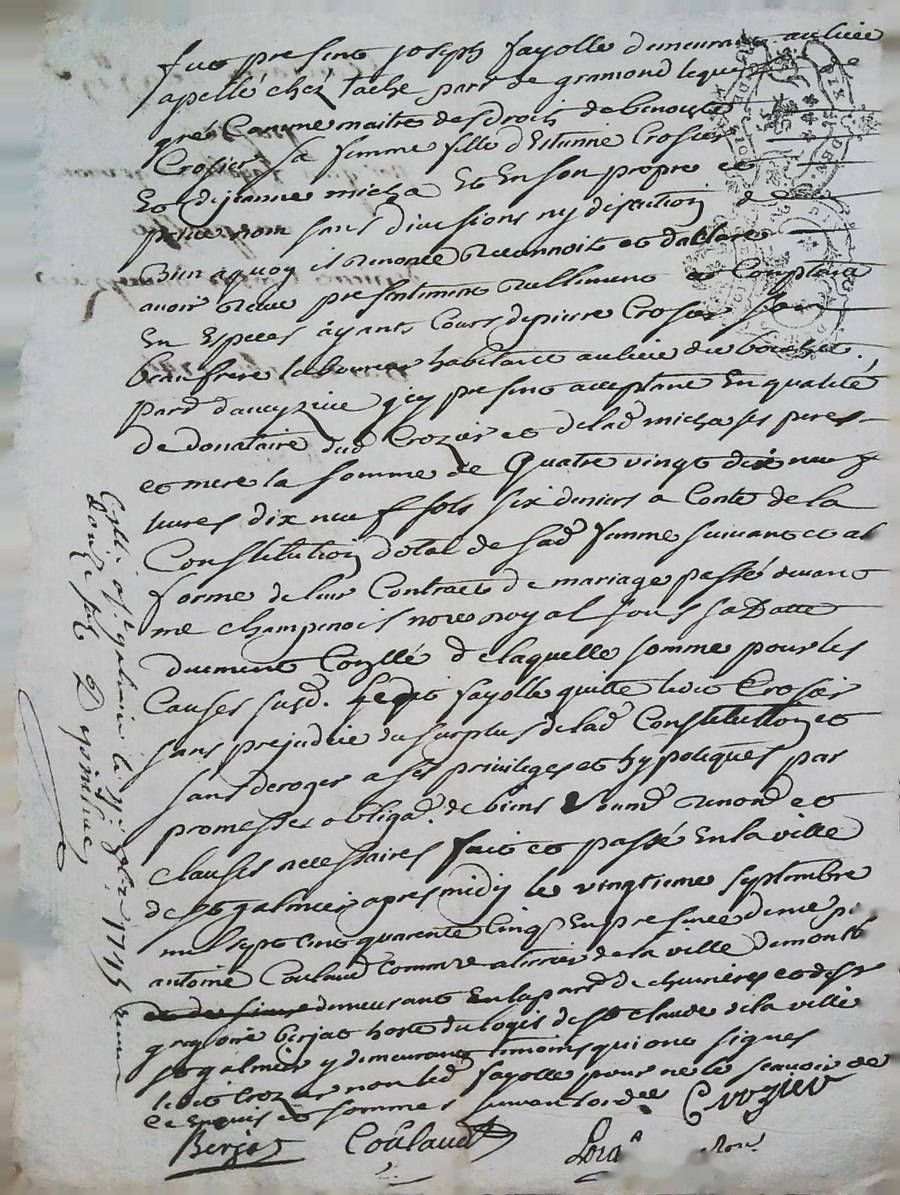 fut present joseph fayolle demeurant au lieu
apellé chez tache parr de gramond lequel de
gré Comme maitre des droits de benoiste
Crosier sa femme fille d'Estienne Crosier
Et de jeanne micha Et En son propre et
privé nom sans divisions ny discution de
Bien aquoy il renonce Reconnoit et déclare
avoir Receu presentement Reellement et Comptant
En Especes ayants Cours de pierre Crosier son
beaufrere laboureur habitant au lieu du bouchet
parr d'aveyzieu icy present acceptant En qualité
de donataire dud Crozier et de lad micha ses peres
et mere la somme de Quatre vingt dix neuf
livres dix neuf sols six deniers a Conte de la
Constitution dotal de sad femme suivant et al
forme de leur Contract de mariage passé devant
me champenois nore royal sous sa Datte
Duement Conllé de laquelle somme pour les
Causes susd. ledit fayolle quitte ledit Crosier
sans prejudice du surplus de lad Constitution et
sans deroger a ses privileges et hypotiques par
promesses obligaõ. de biens Renond et
clauses necessaires fait et passé En la ville
de st galmier apres midy le vingtieme septembre
mil sept cent quarente Cinq En presence de me
antoine Coulaud Commre de la ville de montb
demeurant En la parr de chevrieres et de sr
gregoire berjat hoste du logis de st claude de la ville
st galmier y demeurant temoins qui ont signes
ledit Crozier non led fayolle pour ne le scavoir de
ce requis et sommés suivant ordce Crozier
Berjat Coulaud
Collé a st galmier le 1745 Reçu
douze sols